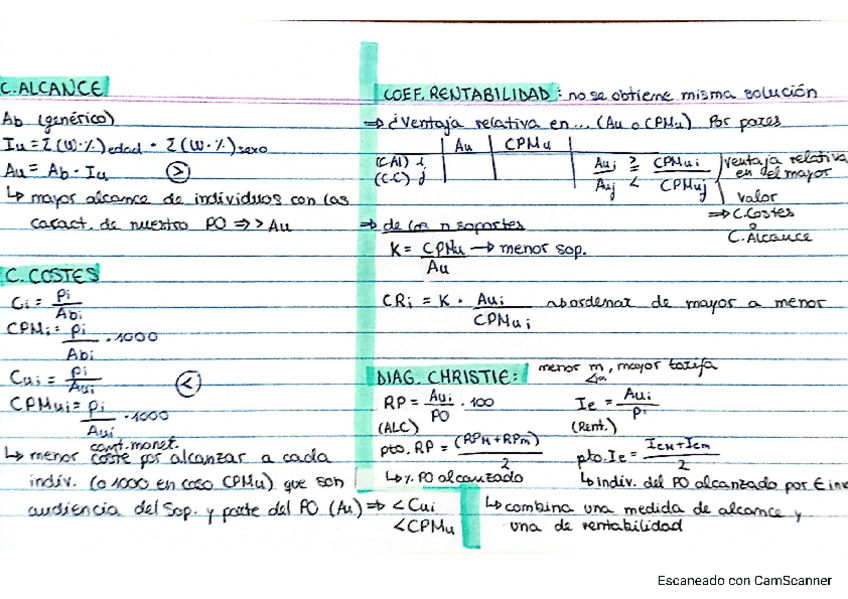 C. ALCANCE
Ab (genérico)
Iu = Σ(W·%)edad · Σ(W·%)sexo
Au = Ab · Iu (>)
↳ mayor alcance de individuos con las
caract. de nuestro PO => > Au
C. COSTES
Ci = Pi / Abi
CPMi = Pi / Abi · 1000
Cui = Pi / Aui (<)
CPMui = Pi / Aui · 1000
cant. monet.
↳ menor coste por alcanzar a cada
indiv. (o 1000 en caso CPMu) que son
audiencia del Sop. y parte del PO (Au) => < Cui
< CPMu
COEF. RENTABILIDAD: no se obtiene misma solución
=> ¿Ventaja relativa en... (Au o CPMu) Por pares
Au | CPMu
(C.Al) i
(C.C) j
Aui / Auj ≥ < CPMui / CPMuj
ventaja relativa
en el mayor
valor
=> C. Costes
o
C. Alcance
=> de los n soportes
K = CPMu / Au → menor sop.
CRi = K · Aui / CPMui ordenar de mayor a menor
DIAG. CHRISTIE: menor m, mayor tarifa
RP = Aui / PO · 100
(ALC)
pto. RP = (RPM + RPm) / 2
↳ % PO alcanzado
Ie = Aui / Pi
(Rent.)
pto. Ie = IeM + Iem / 2
↳ indiv. del PO alcanzado por € inv
↳ combina una medida de alcance y
una de rentabilidad
Escaneado con CamScanner